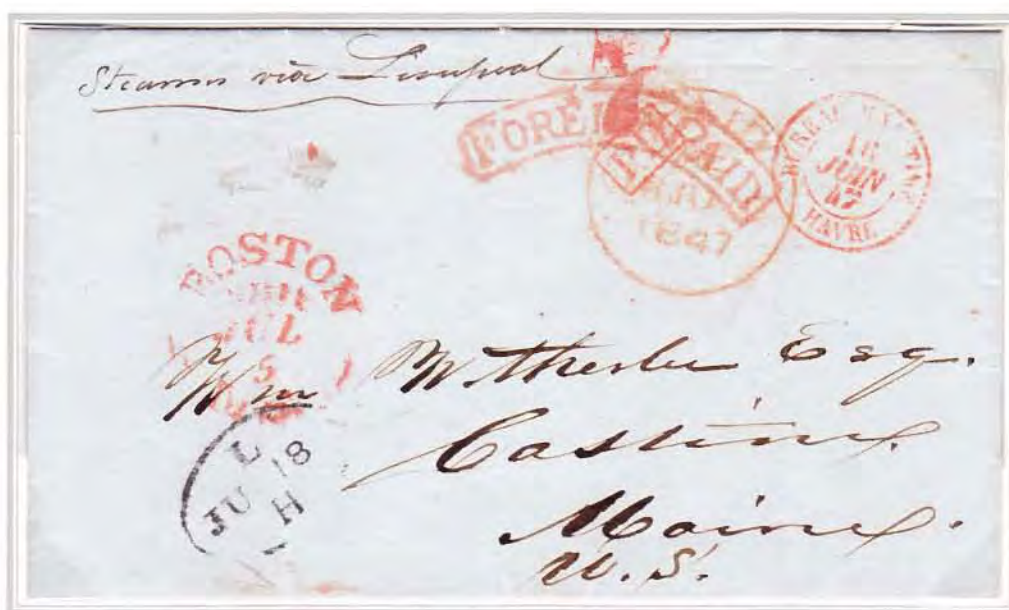 Steamer via Liverpool
FOREIGN
PAID
1847
BUREAU MARITIME
16
JUIN
47
HAVRE
BOSTON
SHIP
JUL
5
Wm Witherle Esq.
Castine.
Maine.
U.S.
L
JU 18
H